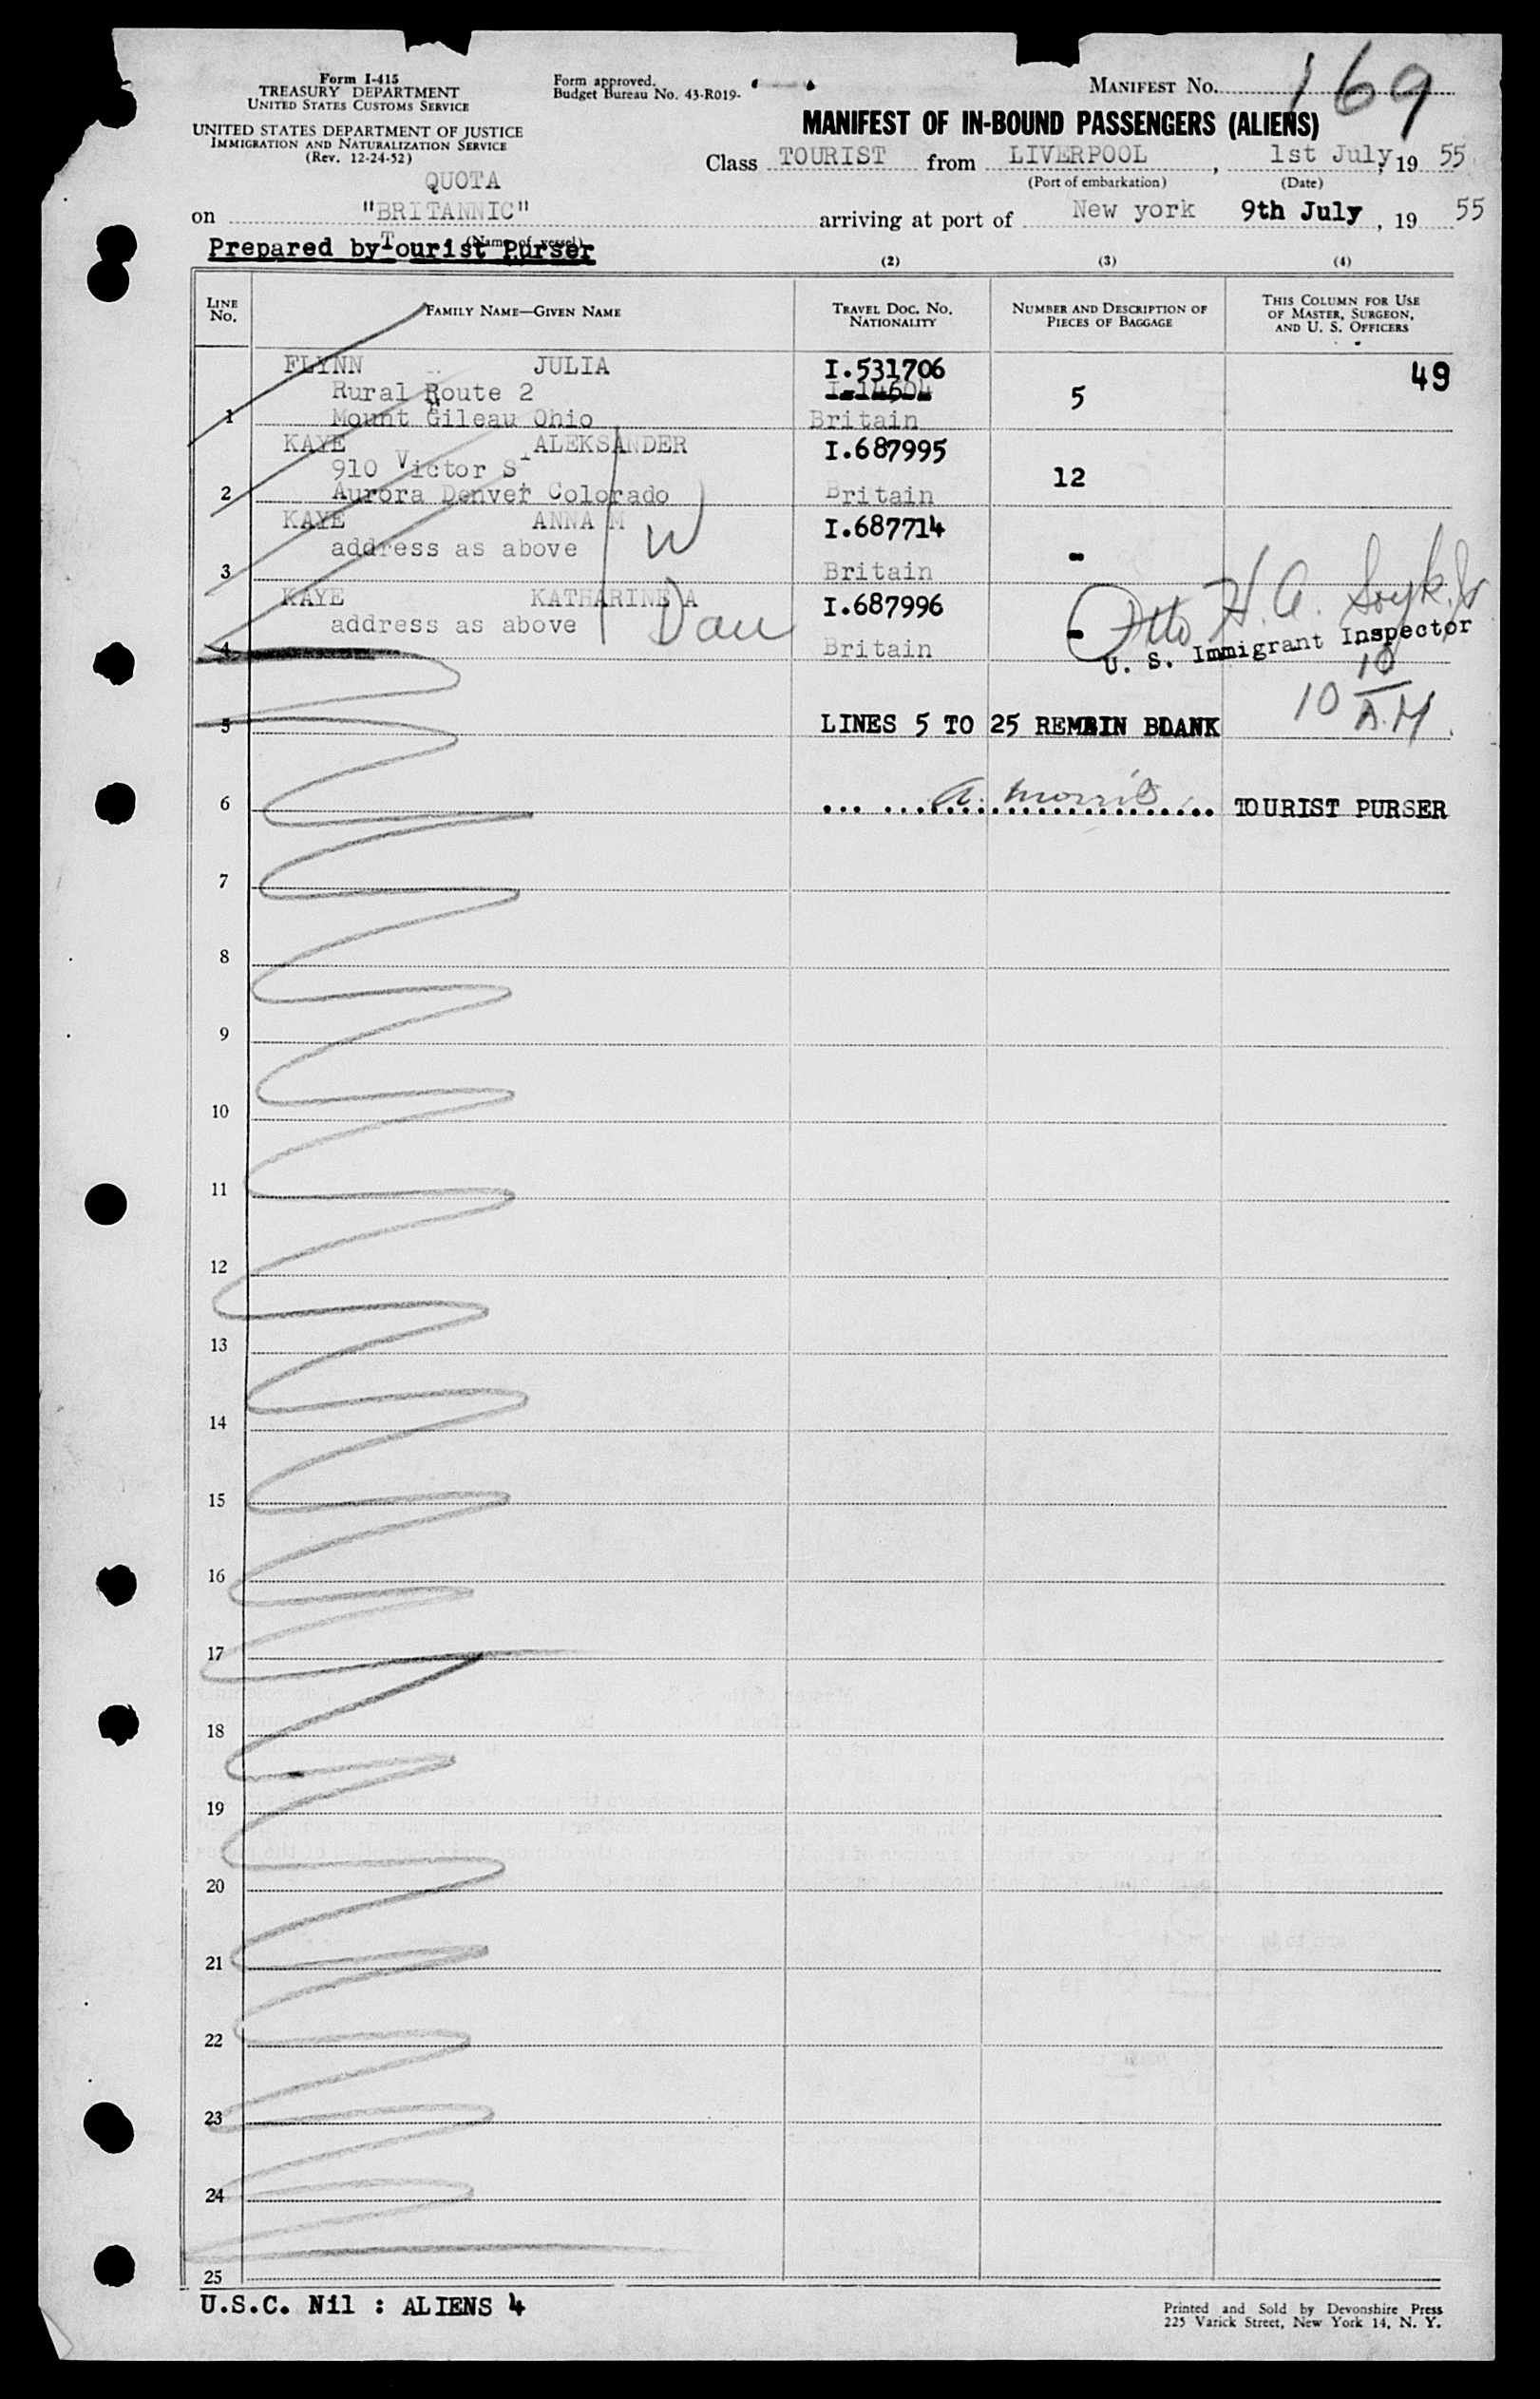 Form I-415
TREASURY DEPARTMENT
UNITED STATES CUSTOMS SERVICE
Form approved.
Budget Bureau No. 43-R019-
MANIFEST NO. 169
UNITED STATES DEPARTMENT OF JUSTICE
IMMIGRATION AND NATURALIZATION SERVICE
(Rev. 12-24-52)
MANIFEST OF IN-BOUND PASSENGERS (ALIENS)
Class TOURIST from LIVERPOOL, 1st July, 19 55
(Port of embarkation) (Date)
QUOTA
on "BRITANNIC" arriving at port of New york 9th July, 19 55
(Name of vessel)
Prepared by Tourist Purser
(2) (3) (4)
LINE No. FAMILY NAME—GIVEN NAME TRAVEL DOC. NO. NATIONALITY NUMBER AND DESCRIPTION OF PIECES OF BAGGAGE THIS COLUMN FOR USE OF MASTER, SURGEON, AND U. S. OFFICERS
FLYNN JULIA I.531706 49
Rural Route 2 I-14604 5
1 Mount Gileau Ohio Britain
KAYE ALEKSANDER I.687995
910 Victor S 12
2 Aurora Denver Colorado Britain
KAYE ANNA M I.687714
address as above W -
3 Britain
KAYE KATHARINE A I.687996
address as above - Otto H. A.
4 Britain U. S. Immigrant Inspector
10 10 A.M.
5 LINES 5 TO 25 REMAIN BLANK
6 A. Morris TOURIST PURSER
7
8
9
10
11
12
13
14
15
16
17
18
19
20
21
22
23
24
25
U.S.C. Nil : ALIENS 4
Printed and Sold by Devonshire Press
225 Varick Street, New York 14, N. Y.